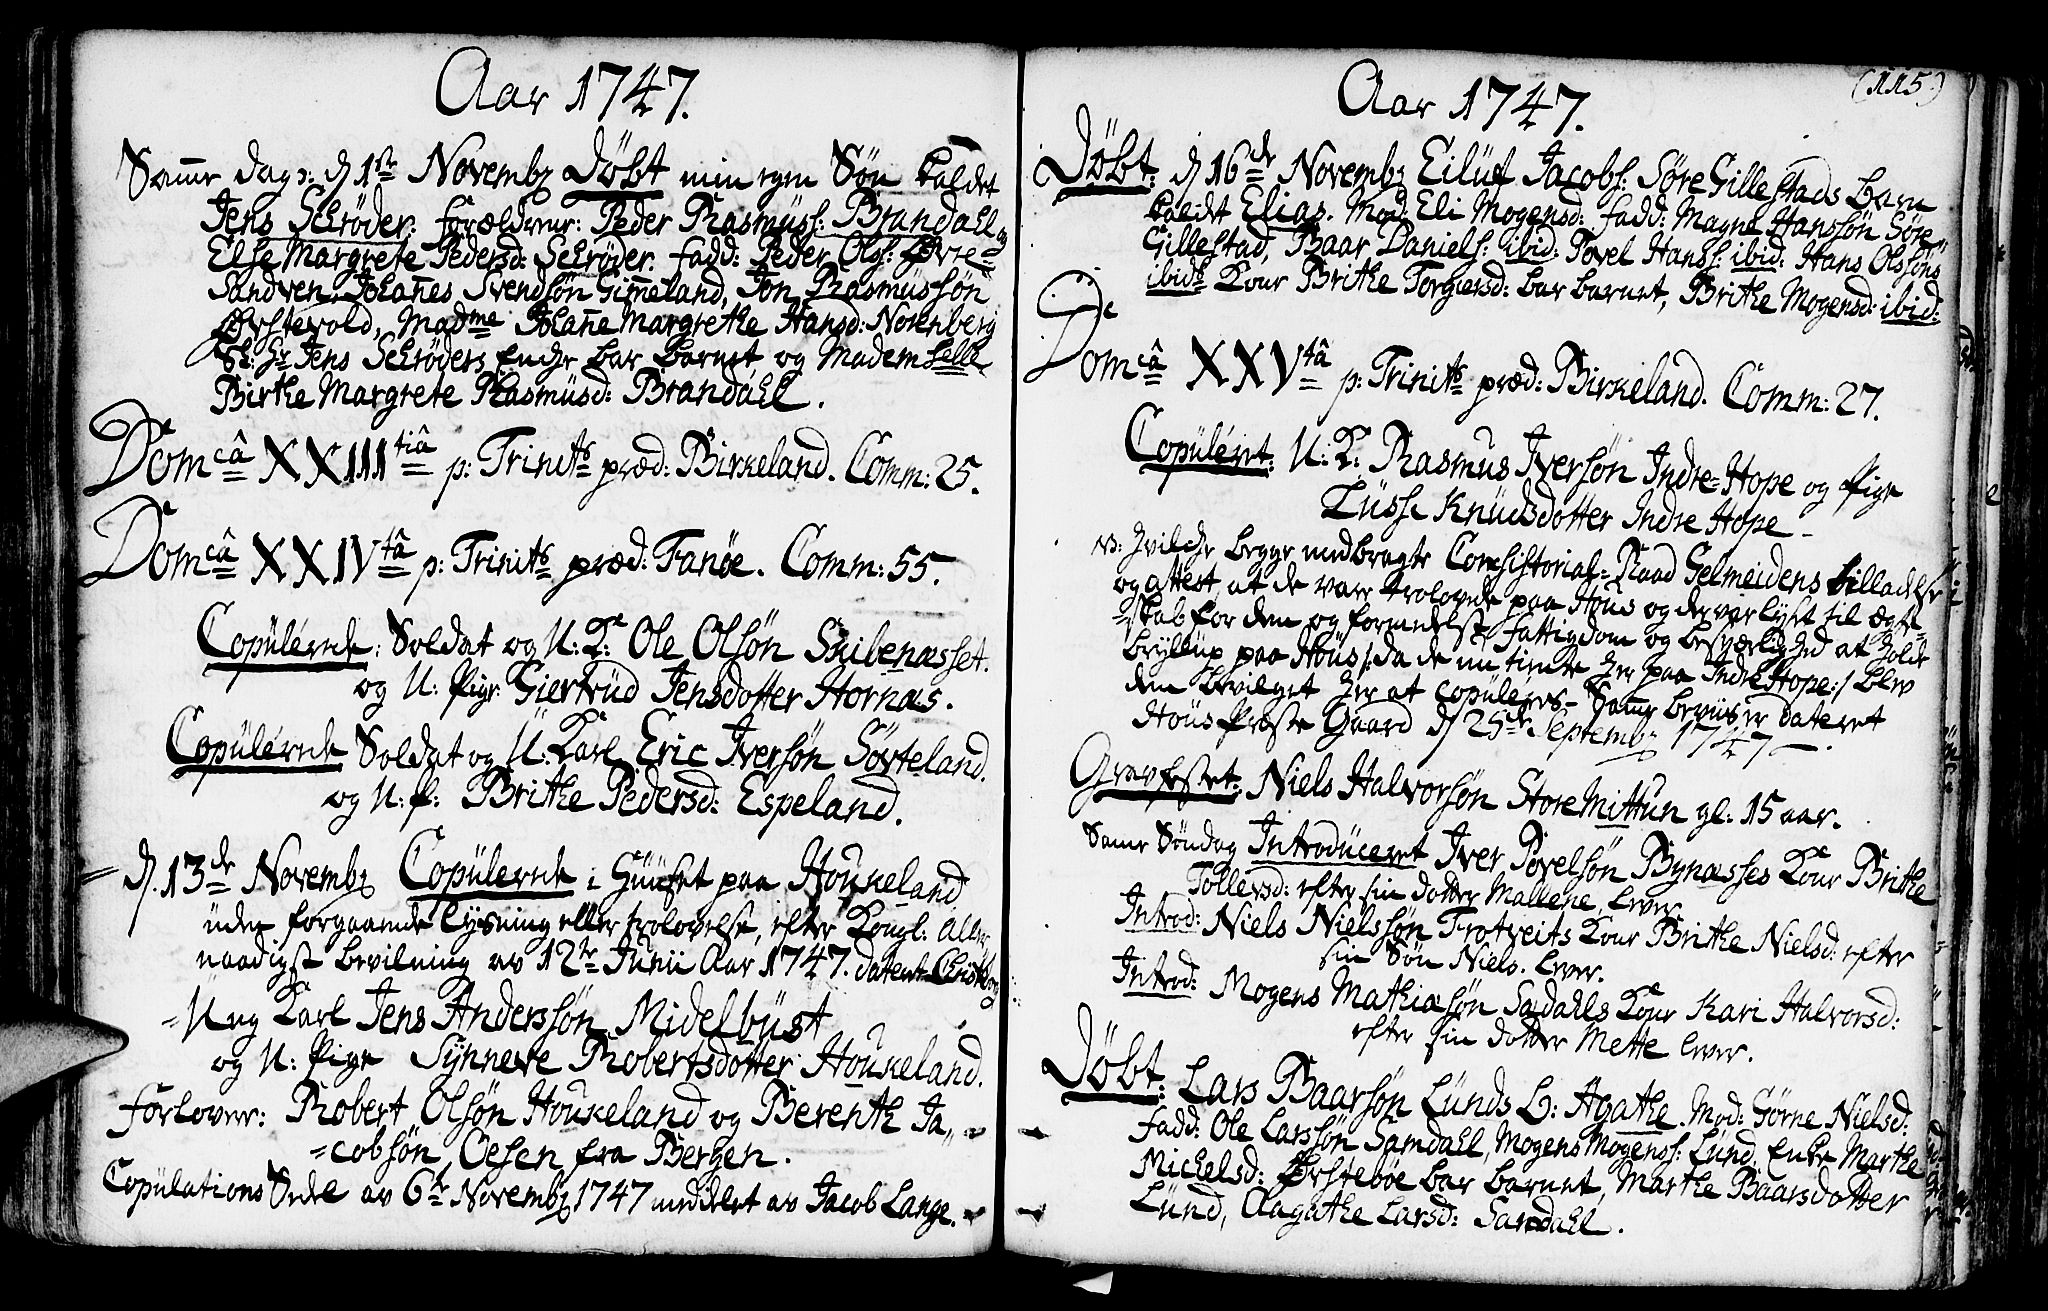 Aar 1747.
Samme dag ɔ: d 1ste Novembr Döbt min egen Sön kaldet
Jens Schröder: forældrene: Peder Rasmüss: Brandahl og
Else Margrete Pedersd: Schröder. fadd: Peder Ols: Øvre-
Sandven, Johañes Svendsön Gimeland, Jon Rasmüssön
Ørstevold, Madme Johañe Margrethe Hansd: Norenberg
Sl: Hr Jens Schröders Enche bar barnet og Mademselle
Birthe Margrete Rasmüsd: Brandahl.
Domcâ XXIIItiâ p: Trinits præd: Birkeland. Comm: 25.
Domcâ XXIVtâ p: Trinits præd: Fanöe. Comm: 55.
Copülerede: Soldat og U: K: Ole Olsön Skibenæsset.
og U: Pige: Giertrüd Jensdotter Hornæs.
Copülerede Soldat og U: Karl Eric Iversön Sörteland.
og U: p: Brithe Pedersd: Espeland.
d. 13de Novembr Copülerede i Hüüset paa Houkeland
uden forgaaende lysning eller trolovelse, efter Kongl: aller
naadigst bevilning av 12te Junii Aar 1747. datert Christb:
Ung Karl Jens Anderssön Midelbüst
og U: Pige Synneve Robertsdotter Houkeland.
Forlover: Robert Olsön Houkeland og Berenth Ja-
=cobsön Oesen fra Bergen.
Copülations Sedel av 6te Novembr 1747 meddelt av Jacob Lange.
Aar 1747.
(115)
Döbt: d 16de Novembr Eilüf Jacobs: Söre Gillestads barn
kaldet Elias. Mod: Eli Mogensd: fadd: Magne Hanssön Söre
Gillestad, Baar Daniels: ibid: Povel Hanss: ibid: Hans Olssöns
ibid: Kone Brithe Torgiersd: bar barnet, Brithe Mogensd: ibid:
Domcâ XXVtâ p: Trinits præd: Birkeland. Comm: 27.
Copüleret: U: K: Rasmus Iversön Indre-Hope og Pige
Lusse Knüdsdotter Indre Hope
NB: hvilche begge medbragte Consistorial-Raad Gelmeidens tilladelse
og attest, at de vare trolovede paa Hous og der var lyst til ægte-
=skab for dem og formedelst fattigdom og besværlighed at holde
bryllup paa Hous /: da de nu tiente her paa Indre Hope:/ blev
dem bevilget her at copüleres. Samme beviis er dateret
Hous Præste Gaard d 25de Septembr 1747.
Gravfestet: Niels Halvorsön Store Mittun gl: 15 aar.
Same Söndag Introduceret Iver Povelsön Bynæsses Kone Brithe
Tollevsd: efter sin dotter Mallene, lever.
Introd: Niels Nielssön Trotveits Kone Brithe Nielsd: efter
sin Sön Niels. lever.
Introd: Mogens Mathiasön Sædahls Kone Kari Halvorsd:
efter sin dotter Mette lever.
Döbt: Lars Baarsön Lünds b: Agathe. Mod: Görne Nielsd:
fadd: Ole Larssön Samdahl, Mogens Mogenss: Lünd, Enke Marthe
Michelsd: Ørsteböe bar barnet, Marthe Baarsdotter
Lünd, Aagathe Larsd: Samdahl.